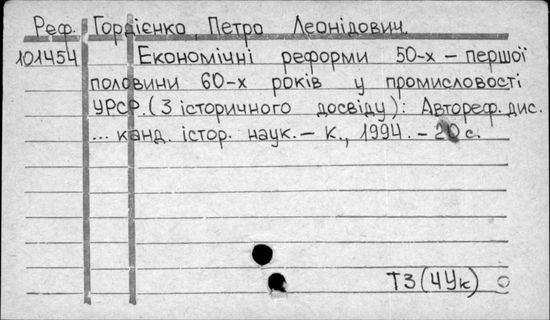 Реф. Гордієнко, Петро Леонідович.
101454 Економічні реформи 50-х – першої
половини 60-х років у промисловості
УРСР. (З історичного досвіду): Автореф. дис.
... канд. істор. наук. – К., 1994. – 20 с.
Т3(4Ук)